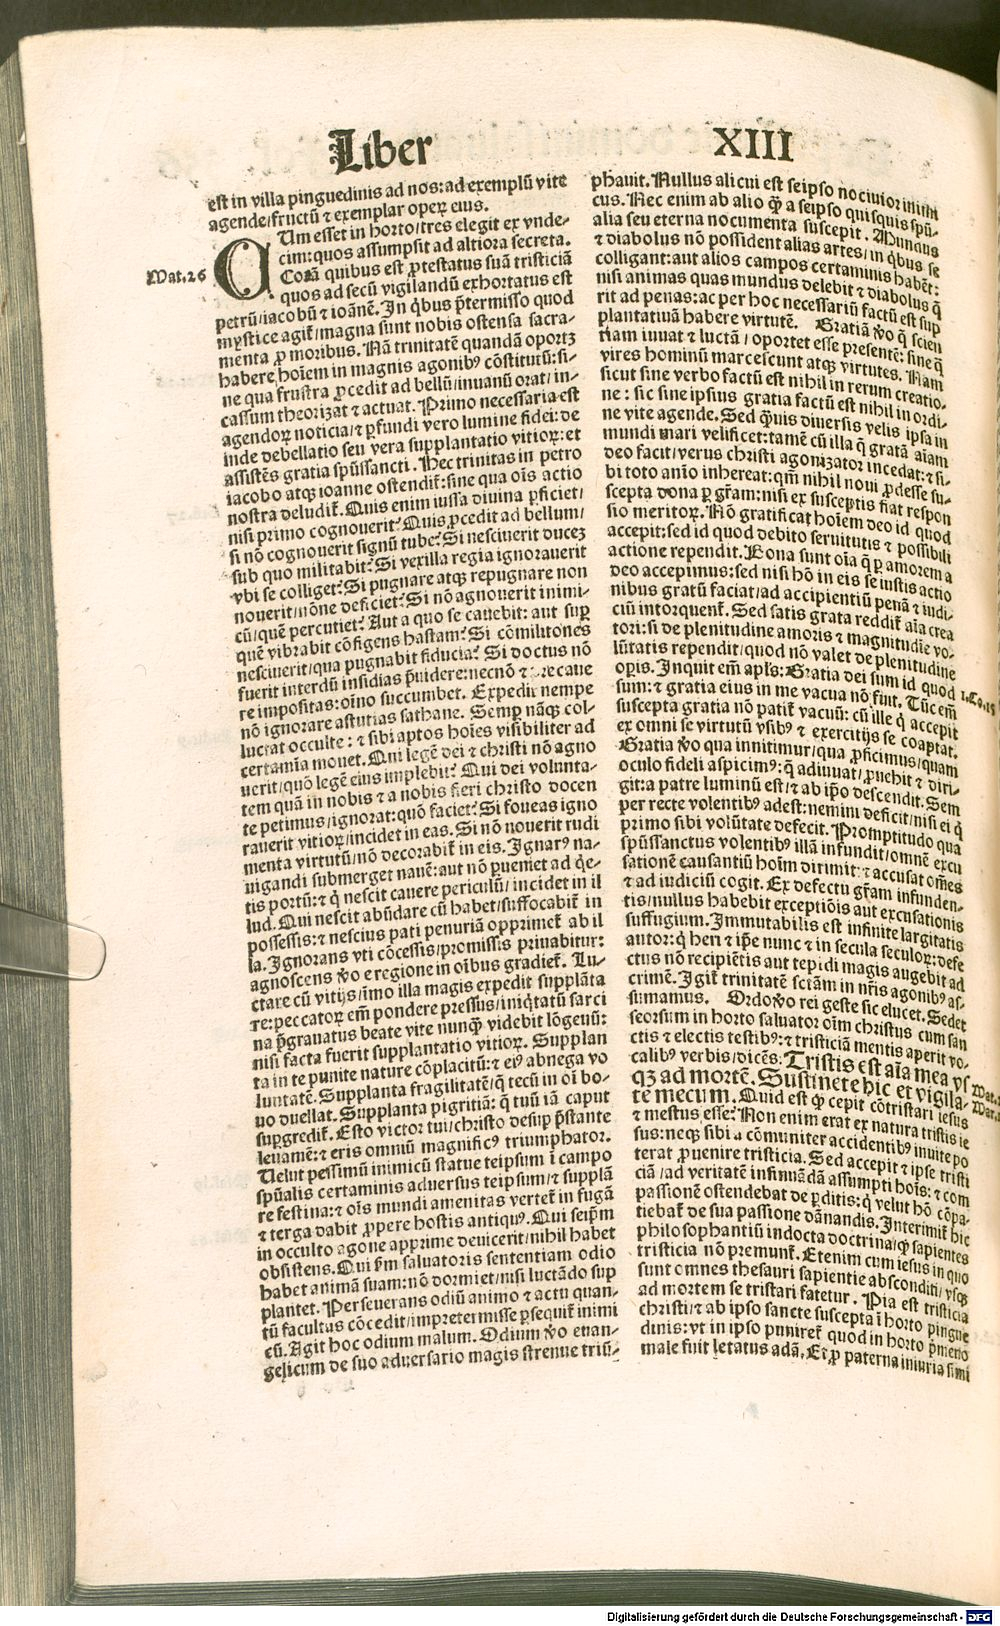 Liber XIII
est in villa pinguedinis ad nos:ad exemplũ vite
agende/fructũ ⁊ exemplar operꝫ eius.
Mat.26
CUm esset in horto/tres elegit ex vnde-
cim:quos assumpsit ad altiora secreta.
Corã quibus est ꝓtestatus suã tristiciã
quos ad secũ vigilandũ exhortatus est
petrũ/iacobũ ⁊ ioãnẽ. In q̃bus p̃termisso quod
mystice agit̃/magna sunt nobis ostensa sacra-
menta ꝓ moribus. Nã trinitatẽ quandã oportꝫ
habere hoĩem in magnis agonibꝰ cõstitutũ:si-
ne qua frustra ꝓcedit ad bellũ/inuanũ orat/in-
cassum theorizat ⁊ actuat. Primo necessaria est
agendoꝝ noticia/⁊ ꝓfundi vero lumine fidei:de
inde debellatio seu vera supplantatio vitioꝝ:et
assistẽs gratia spũssancti. Hec trinitas in petro
iacobo atqꝫ ioanne ostendit̃:sine qua oĩs actio
nostra deludit̃. Quis enim iussa diuina ꝑficiet/
nisi primo cognouerit? Quis ꝓcedit ad bellum/
si nõ cognouerit signũ tube? Si nesciuerit ducez
sub quo militabit? Si vexilla regia ignorauerit
vbi se colliget? Si pugnare atqꝫ repugnare non
nouerit/nõne deficiet? Si nõ agnouerit inimi-
cũ/quẽ percutiet? Aut a quo se cauebit: aut suꝑ
quẽ vibrabit cõfigens hastam? Si cõmilitones
nesciuerit/qua pugnabit fiducia? Si doctus nõ
fuerit interdũ insidias p̃uidere:necnõ ⁊ precaue
re impositas:oĩno succumbet. Expedit nempe
nõ ignorare astutias sathane. Semꝑ nãqꝫ col-
luctat occulte: ⁊ sibi aptos hoĩes visibiliter ad
certamĩa mouet. Qui legẽ dei ⁊ christi nõ agno
uerit/quõ legẽ eius implebit? Qui dei volunta-
tem quã in nobis ⁊ a nobis fieri christo docen
te petimus/ignorat:quõ faciet? Si foueas igno
rauerit vitioꝝ/incidet in eas. Si nõ nouerit rudi
menta virtutũ/nõ decorabit̃ in eis. Ignarꝰ na-
uigandi submerget nauẽ:aut nõ ꝑueniet ad q̃e-
tis portũ:⁊ q̃ nescit cauere periculũ/ incidet in il
lud. Qui nescit abũdare cũ habet/suffocabit̃ in
possessis:⁊ nescius pati penuriã opprimet̃ ab il
la. Ignorans vti cõcessis/promissis priuabitur:
agnoscens ꝟo e regione in oĩbus gradiet̃. Lu-
ctare cũ vitijs/ĩmo illa magis expedit supplãta
re:peccatoꝝ em̃ pondere pressus/iniq̃tatũ sarci
na p̃grauatus beate vite nunq̃ videbit lõgeuũ:
nisi facta fuerit supplantatio vitioꝝ. Supplan
ta in te punite nature cõplacitũ:⁊ eiꝰ abnega vo
luntatẽ. Supplanta fragilitatẽ/q̃ tecũ in oĩ bo-
no duellat. Supplanta pigritiã: q̃ tuũ iã caput
suꝑgredit̃. Esto victor tui/christo desuꝑ p̃stante
leuamẽ:⁊ eris omniũ magnificꝰ triumphator.
Velut pessimũ inimicũ statue teipsum ĩ campo
spũalis certaminis aduersus teipsum/⁊ supplã
re festina:⁊ oĩs mundi amenitas vertet̃ in fugã
⁊ terga dabit ꝓpere hostis antiquꝰ. Qui seip̃m
in occulto agone apprime deuicerit/nihil habet
obsistens. Qui fm saluatoris sententiam odio
habet animã suam:nõ dormiet/nisi luctãdo suꝑ
plantet. Perseuerans odiũ animo ⁊ actu quan-
tũ facultas cõcedit/impretermisse ꝑsequit̃ inimi
cũ. Agit hoc odium malum. Odium ꝟo euan-
gelicum de suo aduersario magis strenue triũ-
phauit. Nullus alicui est seipso nociuior inimi
cus. Nec enim ab alio q̃ a seipso quisquis spũ-
alia seu eterna nocumenta suscepit. Mundus
⁊ diabolus nõ possident alias artes/in q̃bus se
colligant:aut alios campos certaminis habẽt:
nisi animas quas mundus delebit ⁊ diabolus q̃
rit ad penas:ac per hoc necessariũ factũ est sup
plantatiuã habere virtutẽ. Gratiã ꝟo q̃ scien
tiam iuuat ⁊ luctã/oportet esse presentẽ:sine q̃
vires hominũ marcescunt atqꝫ virtutes. Nam
sicut sine verbo factũ est nihil in rerum creatio-
ne: sic sine ipsius gratia factũ est nihil in ordi-
ne vite agende. Sed q̃uis diuersis velis ipsa in
mundi mari velificet:tamẽ cũ illa q̃ gratã aĩam
deo facit/verus christi agonizator incedat:⁊ si-
bi toto anĩo inhereat:qm̃ nihil noui ꝓdesse su-
scepta dona ꝑ gr̃am:nisi ex susceptis fiat respon
sio meritoꝝ. Nõ gratificat hoĩem deo id quod
accepit:sed id quod debito seruitutis ⁊ possibili
actione rependit. Bona sunt oĩa q̃ ꝑ amorem a
deo accepimus:sed nisi hõ in eis se iustis actio
nibus gratũ faciat/ad accipientiũ penã ⁊ iudi-
ciũ intorquent̃. Sed satis grata reddit̃ aĩa crea
tori:si de plenitudine amoris ⁊ magnitudĩe vo-
lũtatis rependit/quod nõ valet de plenitudine
opis. Inquit em̃ apls:Gratia dei sum id quod
1.Co.15
sum:⁊ gratia eius in me vacua nõ fuit. Tũc em̃
suscepta gratia nõ patit̃ vacuũ: cũ ille q̃ accepit
ex omni se virtutũ vsibꝰ ⁊ exercitijs se coaptat.
Gratia ꝟo qua innitimur/qua ꝓficimus/quam
oculo fideli aspicimꝰ:q̃ adiuuat/ꝓuehit ⁊ diri-
git:a patre luminũ est/⁊ ab ip̃o descendit. Sem
per recte volentibꝰ adest:nemini deficit/nisi ei q̃
primo sibi volũtate defecit. Promptitudo qua
spũssanctus volentibꝰ illã infundit/omnẽ excu
sationẽ causantiũ hoĩm dirimit:⁊ accusat om̃es
⁊ ad iudiciũ cogit. Ex defectu gr̃am infunden-
tis/nullus habebit exceptiõis aut excusationis
suffugium. Immutabilis est infinite largitatis
autor:q̃ heri ⁊ ip̃e nunc ⁊ in secula seculoꝝ:defe
ctus nõ recipiẽtis aut tepidi magis augebit ad
crimẽ. Igit̃ trinitatẽ sctãm in nr̃is agonibꝰ as-
sumamus. Ordo ꝟo rei geste sic elucet. Sedet
seorsum in horto saluator oĩm christus cum san
ctis ⁊ electis testibꝰ:⁊ tristiciã mentis aperit vo-
calibꝰ verbis/dicẽs: Tristis est aĩa mea vs
qꝫ ad mortẽ. Sustinete hic et vigila-
Mat.
te mecum. Quid est q̃ cepit cõtristari iesus
Mar.
⁊ mestus esse? Non enim erat ex natura tristis ie
sus:neqꝫ sibi cõmuniter accidentibꝰ inuite po
terat ꝓuenire tristicia. Sed accepit ⁊ ipse tristi
ciã/ad veritatẽ insinuãdã assumpti hoĩs: ⁊ com
passionẽ ostendebat de ꝑditis: q̃ velut hõ cõpa-
tiebat̃ de sua passione dãnandis. Interimit̃ hic
philosophantiũ indocta doctrina/q̃ sapientes
tristicia nõ premunt̃. Etenim cum iesus in quo
sunt omnes thesauri sapientie absconditi/vsqꝫ
ad mortem se tristari fatetur. Pia est tristicia
christi/⁊ ab ipso sancte suscepta ĩ horto pingue
dinis:vt in ipso puniret̃ quod in horto p̃meno
male fuit letatus adã. Et ꝓ paterna iniuria simi
Digitalisierung gefördert durch die Deutsche Forschungsgemeinschaft - DFG